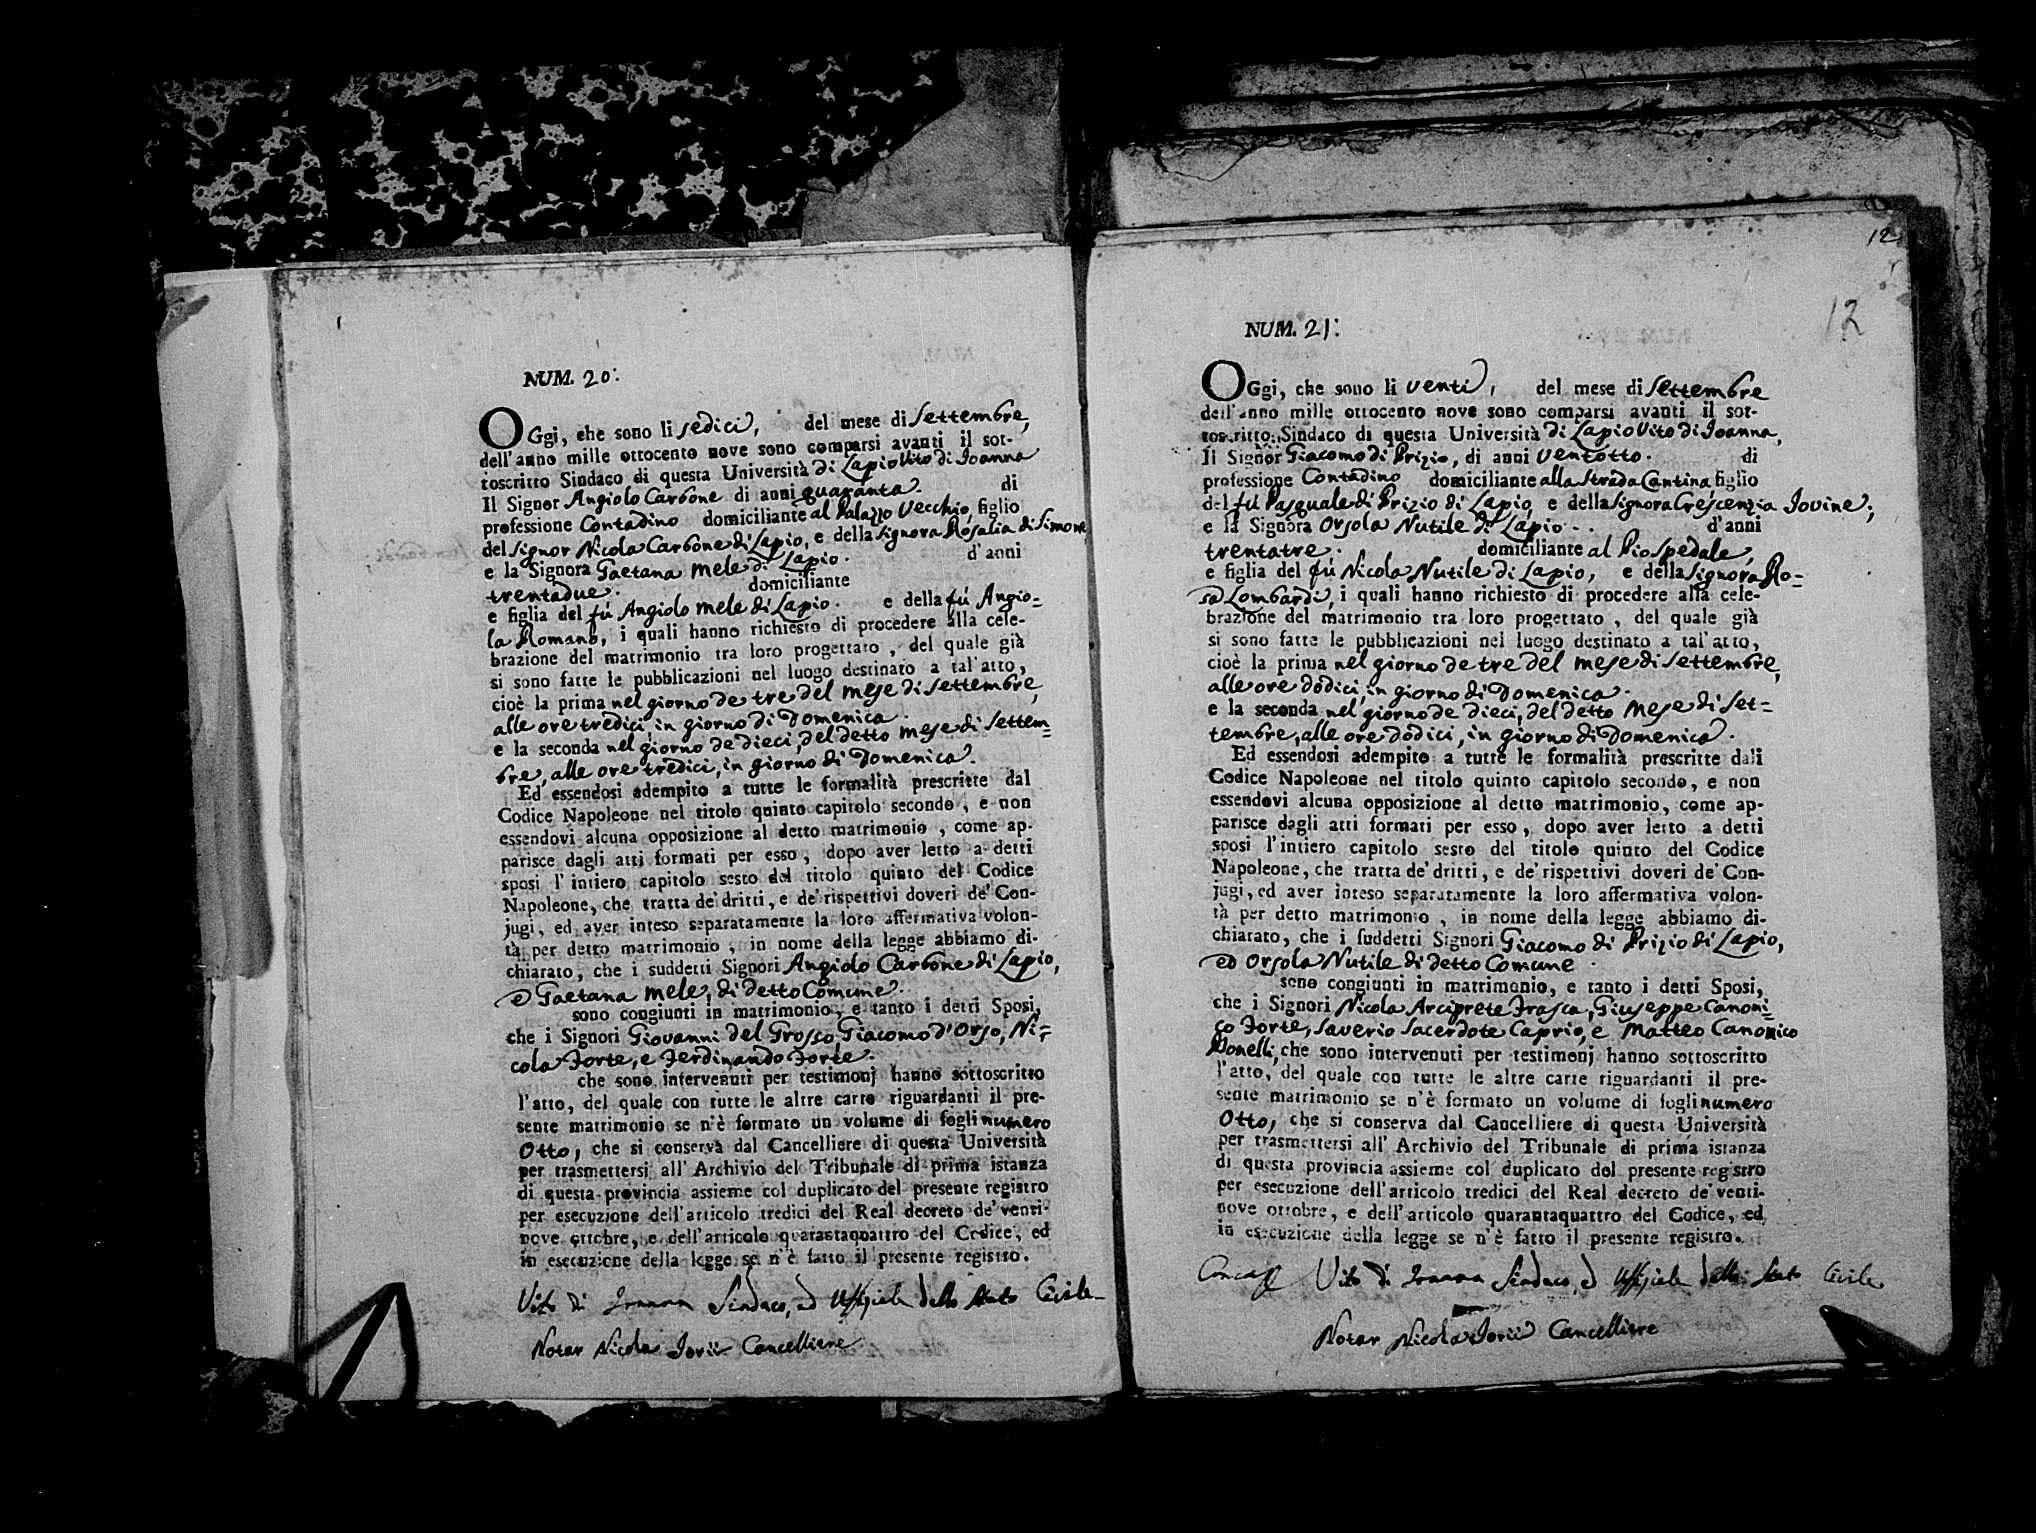 NUM. 20:
OGgi, che sono li sedici, del mese di Settembre,
dell'anno mille ottocento nove sono comparsi avanti il sot-
toscritto Sindaco di questa Università di Lapio Vito di Ioanna
Il Signor Angiolo Carbone di anni quaranta. di
professione Contadino domiciliante al Palazzo Vecchio, figlio
del signor Nicola Carbone di Lapio, e della signora Rosalia di Simone
e la Signora Gaetana Mele di Lapio. d'anni
trentadue. domiciliante
e figlia del fú Angiolo Mele di Lapio. e della fú Angio-
la Romano, i quali hanno richiesto di procedere alla cele-
brazione del matrimonio tra loro progettato, del quale già
si sono fatte le pubblicazioni nel luogo destinato a tal'atto,
cioè la prima nel giorno de tre del mese di Settembre,
alle ore tredici, in giorno di Domenica.
e la seconda nel giorno de dieci, del detto mese di Settem=
bre, alle ore tredici, in giorno di Domenica.
Ed essendosi adempito a tutte le formalità prescritte dal
Codice Napoleone nel titolo quinto capitolo secondo, e non
essendovi alcuna opposizione al detto matrimonio, come ap-
parisce dagli atti formati per esso, dopo aver letto a detti
sposi l'intiero capitolo sesto del titolo quinto del Codice
Napoleone, che tratta de' dritti, e de' rispettivi doveri de' Con-
jugi, ed aver inteso separatamente la loro affermativa volon-
tà per detto matrimonio, in nome della legge abbiamo di-
chiarato, che i suddetti Signori Angiolo Carbone di Lapio,
e Gaetana Mele, di detto Comune.
sono congiunti in matrimonio, e tanto i detti Sposi,
che i Signori Giovanni del Grosso, Giacomo d'Orso, Ni=
cola Forte, e Ferdinando Forte.
che sono intervenuti per testimonj hanno sottoscritto
l'atto, del quale con tutte le altre carte riguardanti il pre-
sente matrimonio se n'è formato un volume di fogli numero
Otto, che si conserva dal Cancelliere di questa Università
per trasmettersi all' Archivio del Tribunale di prima istanza
di questa provincia assieme col duplicato del presente registro
per esecuzione dell'articolo tredici del Real decreto de' venti-
nove ottobre, e dell'articolo quarantaquattro del Codice, ed
in esecuzione della legge se n'è fatto il presente registro.
Vito di Ioanna Sindaco, ed Uffiziale dello Stato Civile
Notar Nicola Iorii Cancelliere
12
12
NUM. 21:
OGgi, che sono li venti, del mese di Settembre
dell'anno mille ottocento nove sono comparsi avanti il sot-
toscritto Sindaco di questa Università di Lapio Vito di Ioanna,
Il Signor Giacomo di Prizio, di anni ventotto. di
professione Contadino domiciliante alla Strada Cantina, figlio
del fú Pasquale di Prizio di Lapio, e della signora Crescenzia Iovine,
e la Signora Orsola Nutile di Lapio. d'anni
trentatre. domiciliante al Pio Spedale,
e figlia del fú Nicola Nutile di Lapio, e della signora Ro=
sa Lombardi, i quali hanno richiesto di procedere alla cele-
brazione del matrimonio tra loro progettato, del quale già
si sono fatte le pubblicazioni nel luogo destinato a tal'atto,
cioè la prima nel giorno de tre del mese di Settembre,
alle ore dodici, in giorno di Domenica.
e la seconda nel giorno de dieci, del detto mese di Set=
tembre, alle ore dodici, in giorno di Domenica.
Ed essendosi adempito a tutte le formalità prescritte dall
Codice Napoleone nel titolo quinto capitolo secondo, e non
essendovi alcuna opposizione al detto matrimonio, come ap-
parisce dagli atti formati per esso, dopo aver letto a detti
sposi l'intiero capitolo sesto del titolo quinto del Codice
Napoleone, che tratta de' dritti, e de' rispettivi doveri de' Con-
jugi, ed aver inteso separatamente la loro affermativa volon-
tà per detto matrimonio, in nome della legge abbiamo di-
chiarato, che i suddetti Signori Giacomo di Prizio di Lapio,
ed Orsola Nutile di detto Comune
sono congiunti in matrimonio, e tanto i detti Sposi,
che i Signori Nicola Arciprete Frasca, Giuseppe Canoni=
co Forte, Saverio Sacerdote Caprio, e Matteo Canonico
Donelli, che sono intervenuti per testimonj hanno sottoscritto
l'atto, del quale con tutte le altre carte riguardanti il pre-
sente matrimonio se n'è formato un volume di fogli numero
Otto, che si conserva dal Cancelliere di questa Università
per trasmettersi all' Archivio del Tribunale di prima istanza
di questa provincia assieme col duplicato del presente registro
per esecuzione dell'articolo tredici del Real decreto de' venti-
nove ottobre, e dell'articolo quarantaquattro del Codice, ed
in esecuzione della legge se n'è fatto il presente registro.
Vito di Ioanna Sindaco, ed Uffiziale dello Stato Civile
Notar Nicola Iorii Cancelliere